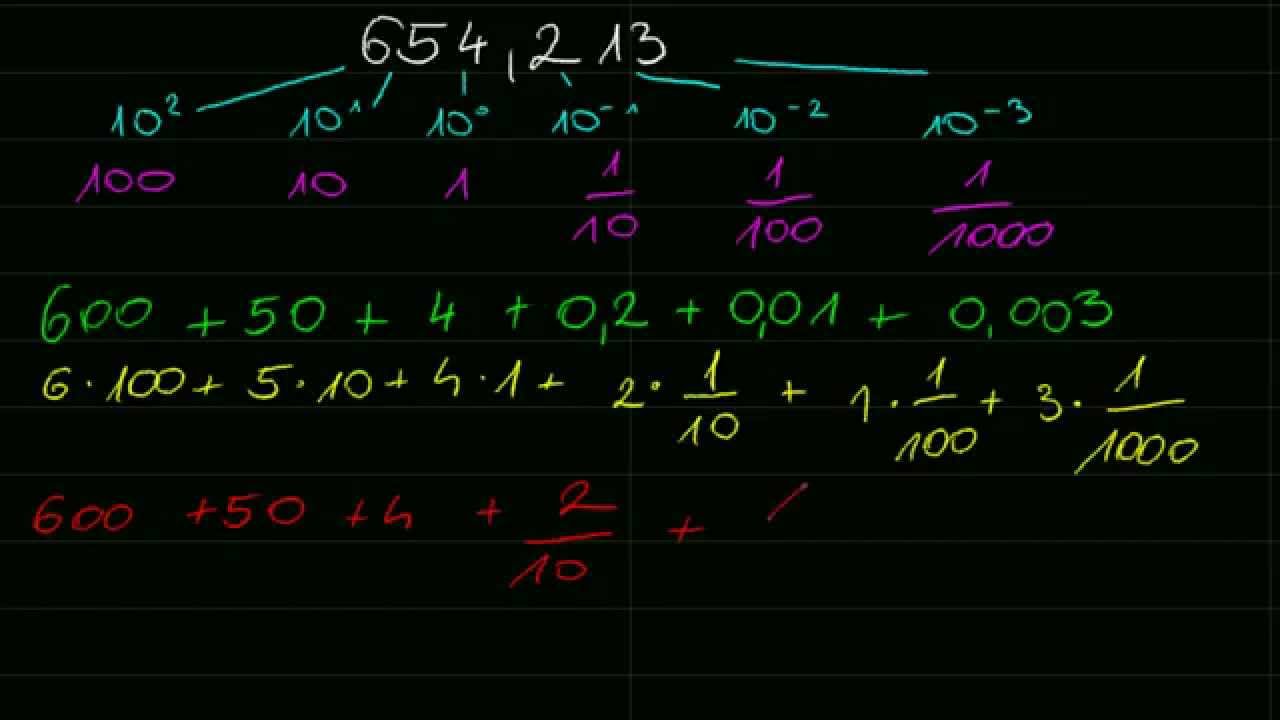 654,213
10² 10¹ 10⁰ 10⁻¹ 10⁻² 10⁻³
100 10 1 1/10 1/100 1/1000
600 + 50 + 4 + 0,2 + 0,01 + 0,003
6·100 + 5·10 + 4·1 + 2·1/10 + 1·1/100 + 3·1/1000
600 + 50 + 4 + 2/10 +